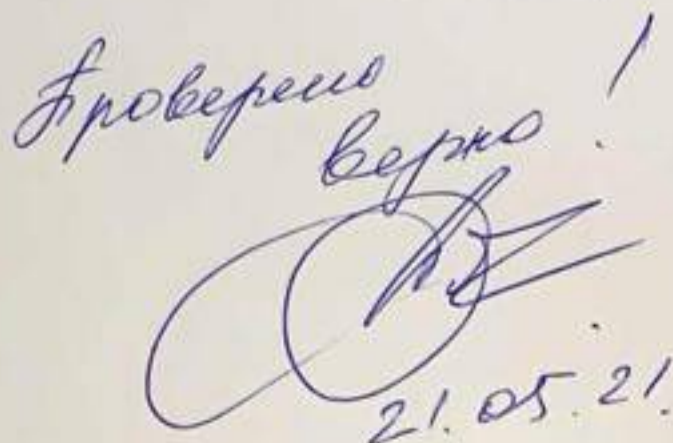 Проверено
верно!
21.05.21.